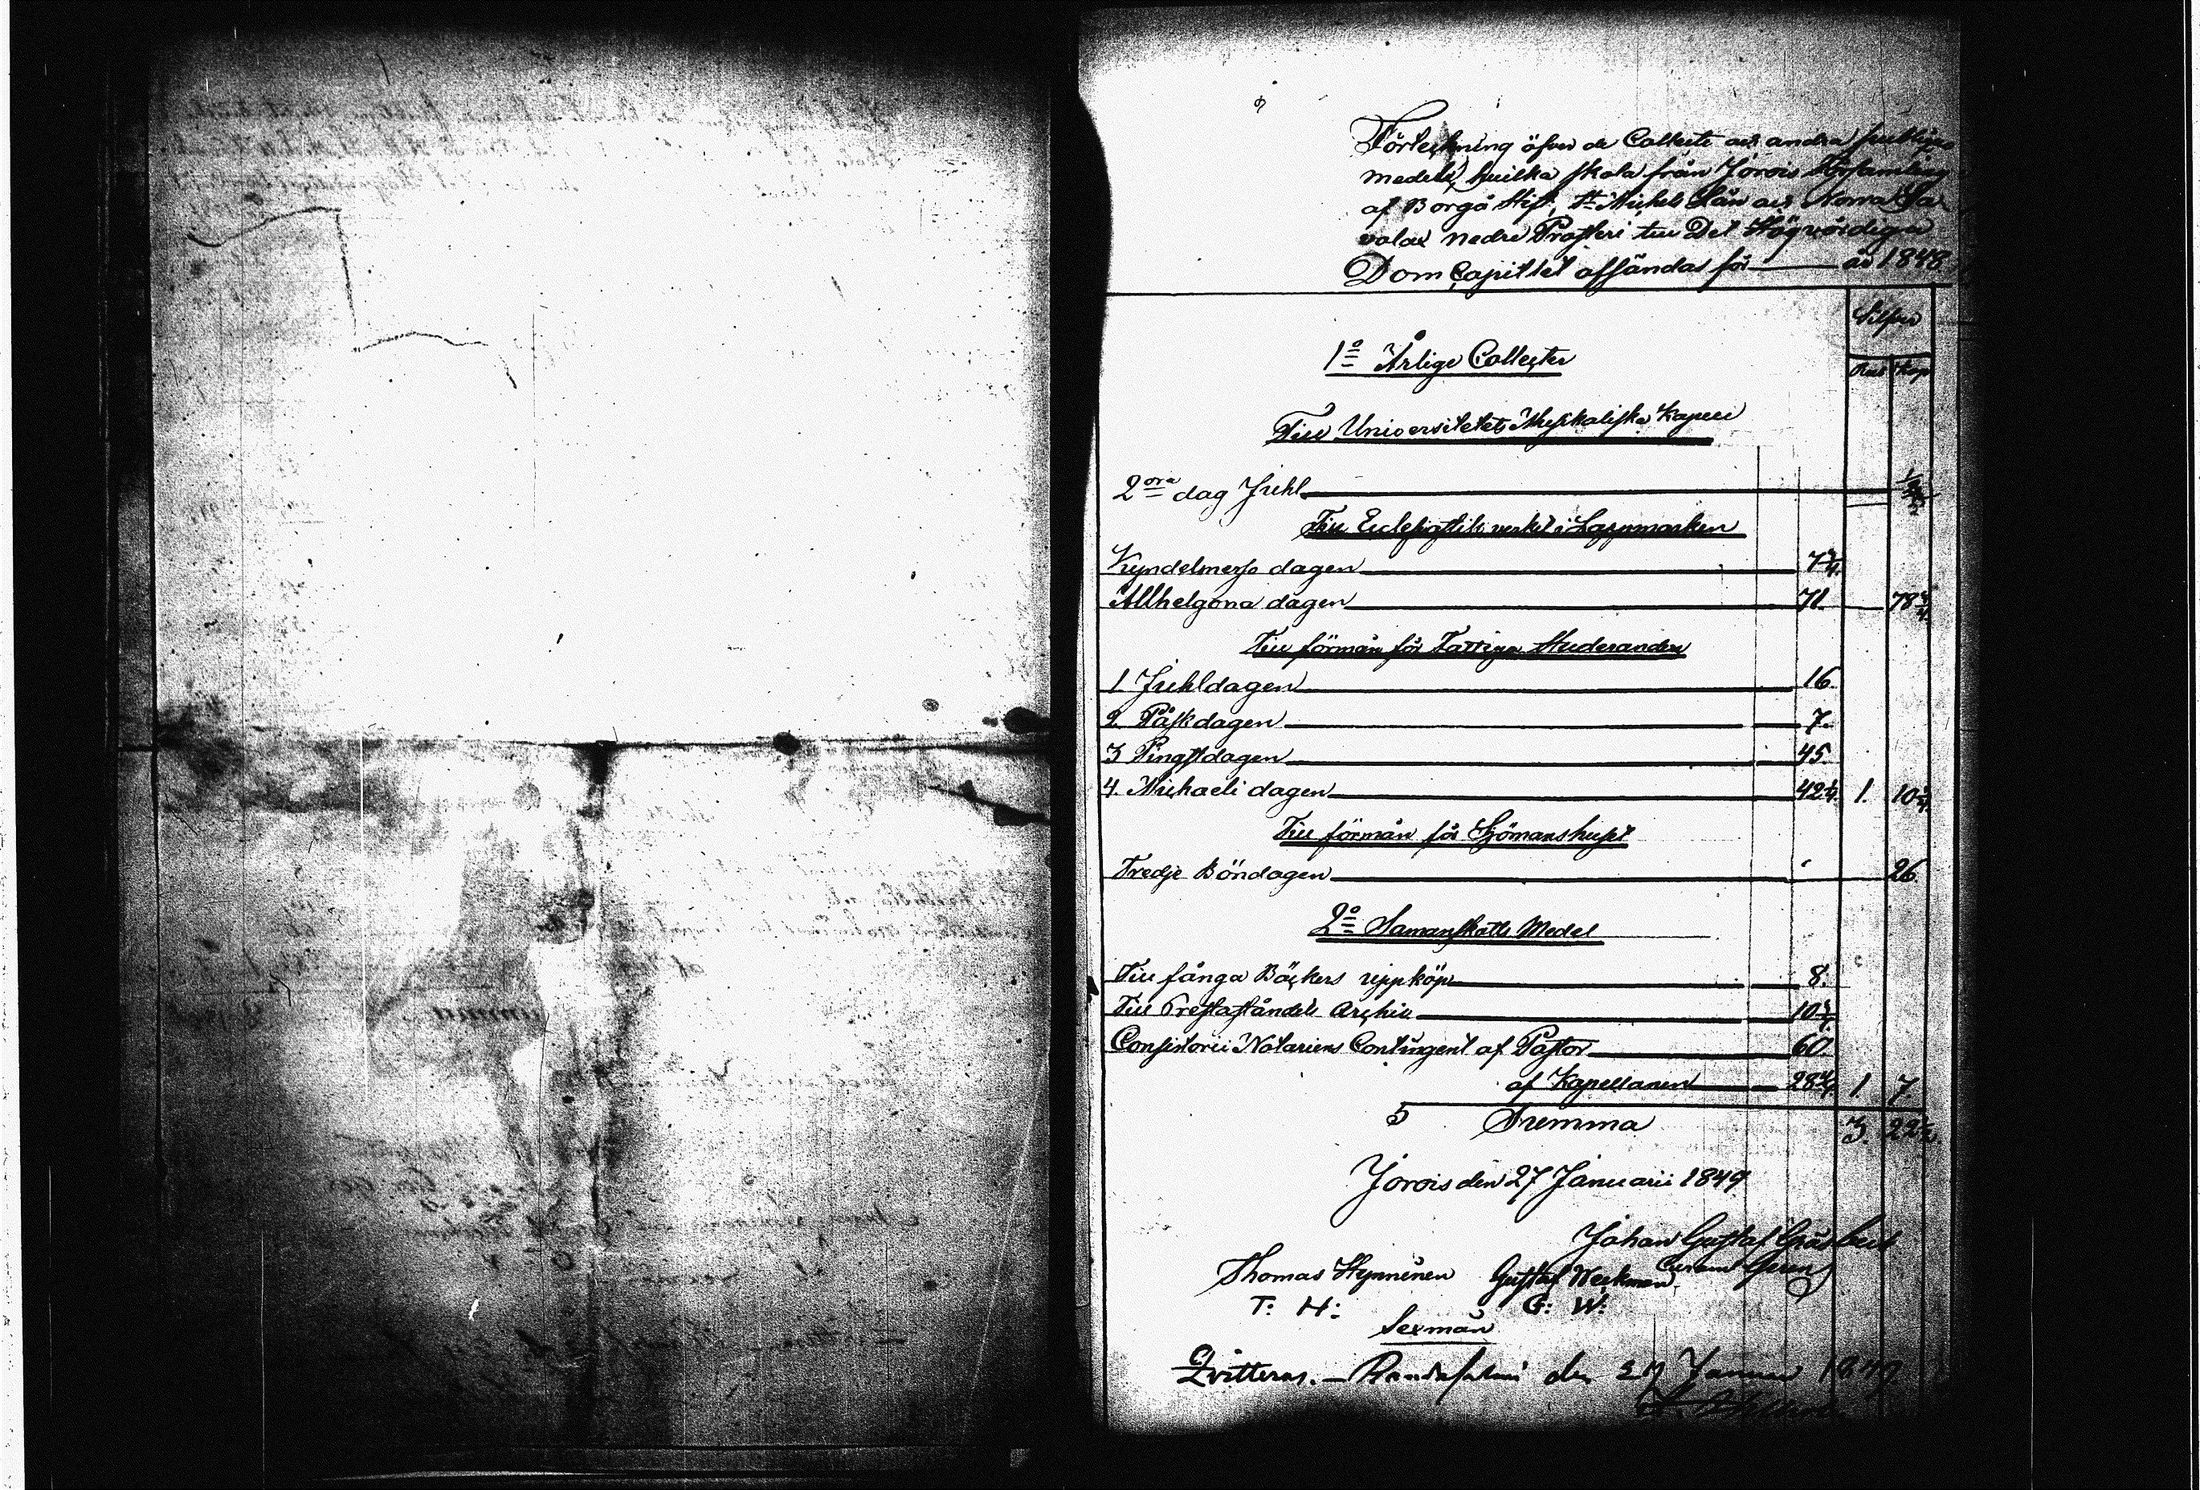 Förteckning öfver de Collecte och andra publique
medel, hvilka skola från Jorois Församling
af Borgå Stift, St Michels Län och Norra Sa
volax nedre Prosteri till Det Högvördige
Dom Capitlet afsändas för — år 1848
Silfver
1º Årlige Collecter
Rub Kop
Till Universitetets Musikaliska Kapell
2ora dag Juhl
Till Ecclesiastik verket i Lappmarken
Kyndelmesso dagen 7 3/4.
Allhelgona dagen 71. 78 3/4.
Till förmån för Fattiga Studerande
1 Juhldagen 16.
2 Påskdagen 7.
3 Pingstdagen 45.
4. Michaeli dagen 42 1/4. 1. 10 1/4.
Till förmån för Sjömanshuset
Tredje Böndagen 26.
2º Sammanskotts Medel
Till fånga Böckers uppköp 8.
Till Prestaståndets Archiv 10 1/4.
Consistorii Notariens Contingent af Pastor 60.
af Kapellanen 28 3/4 1 7.
S Summa 3. 22 1/2
Jorois den 27 Januarii 1849
Johan Gustaf
Thomas Hynninen Gustaf Weckman
T: H: G: W:
Sexmän
Qvitteras. — Randasalmi den 27 Januari 1849.